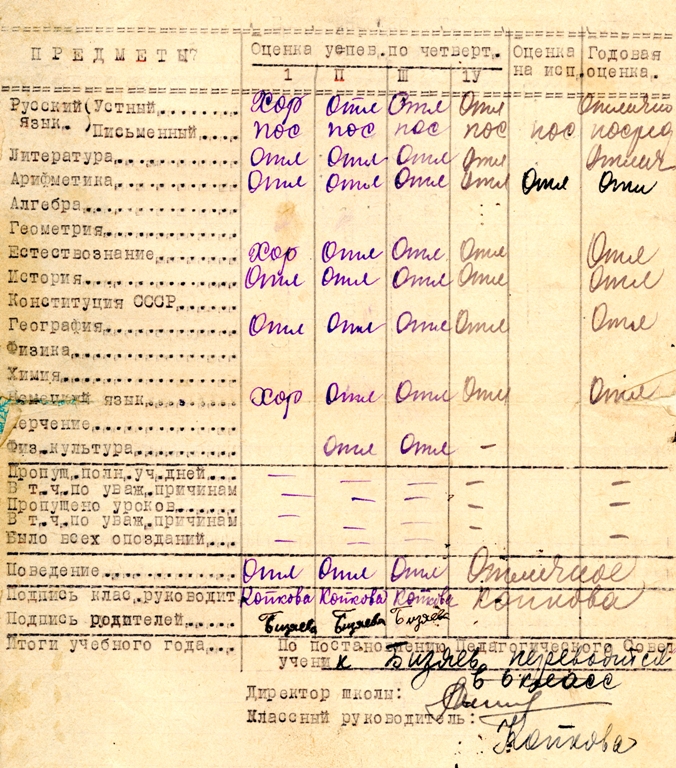 ПРЕДМЕТЫ Оценка успев. по четверт. Оценка на исп. Годовая оценка.
1 П Ш 1У
Русский язык. Устный....... Хор Отл Отл Отл Отлично
Письменный..... пос пос пос пос пос посред
Литература......... Отл Отл Отл Отл Отлич
Арифметика......... Отл Отл Отл Отл Отл Отл
Алгебра...........
Геометрия..........
Естествознание...... Хор Отл Отл Отл Отл
История........... Отл Отл Отл Отл Отл
Конституция СССР....
География.......... Отл Отл Отл Отл Отл
Физика............
Химия.............
Немецкий язык...... Хор Отл Отл Отл Отл
Черчение...........
Физ.культура....... Отл Отл –
Пропущ.полн.уч.дней.... – – – – –
В т.ч.по уваж.причинам – – – – –
Пропущено уроков..... – – – – –
В т.ч.по уваж.причинам – – – – –
Было всех опозданий.... – – – – –
Поведение........... Отл Отл Отл Отличное
Подпись клас.руководит. Копкова Копкова Копкова Копкова
Подпись родителей.... Бизяева Бизяева Бизяева
Итоги учебного года.... По постановлению Педагогического Совета
учени к Бизяев переводится
в 6 класс
Директор школы:
Классный руководитель:
Копкова